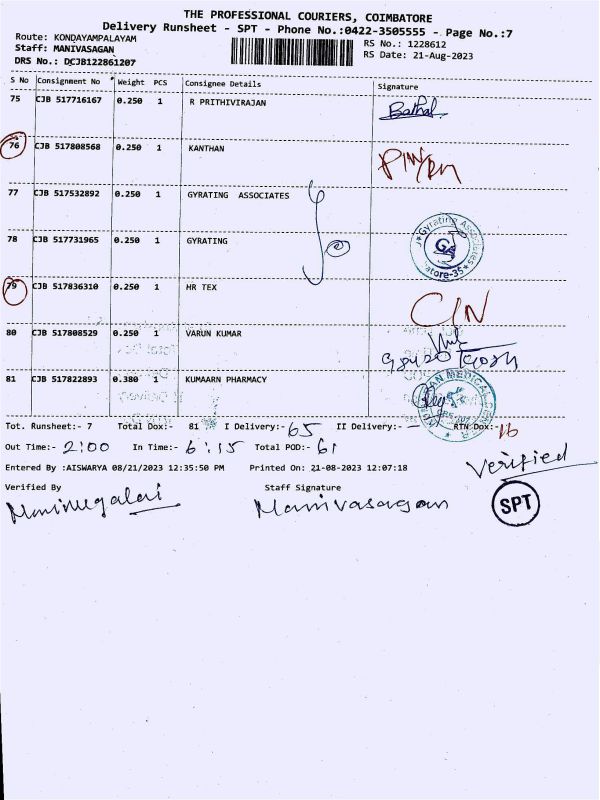 THE PROFESSIONAL COURIERS, COIMBATORE
Delivery Runsheet - SPT - Phone No.:0422-3505555 - Page No.:7
Route: KONDAYAMPALAYAM
Staff: MANIVASAGAN
DRS No.: DCJB122861207
RS No.: 1228612
RS Date: 21-Aug-2023
S No Consignment No Weight PCS Consignee Details Signature
75 CJB 517716167 0.250 1 R PRITHIVIRAJAN
76 CJB 517808568 0.250 1 KANTHAN
77 CJB 517532892 0.250 1 GYRATING ASSOCIATES
78 CJB 517731965 0.250 1 GYRATING
Gyrating Associates
GA
79 CJB 517836310 0.250 1 HR TEX
C/N
80 CJB 517808529 0.250 1 VARUN KUMAR
81 CJB 517822893 0.380 1 KUMAARN PHARMACY
Tot. Runsheet:- 7 Total Dox:- 81 I Delivery:- 65 II Delivery:- — RTN Dox:- 16
Out Time:- 2:00 In Time:- 6:15 Total POD:- 61
Verified
Entered By :AISWARYA 08/21/2023 12:35:50 PM Printed On: 21-08-2023 12:07:18
Verified By Staff Signature
Manivasagan
SPT